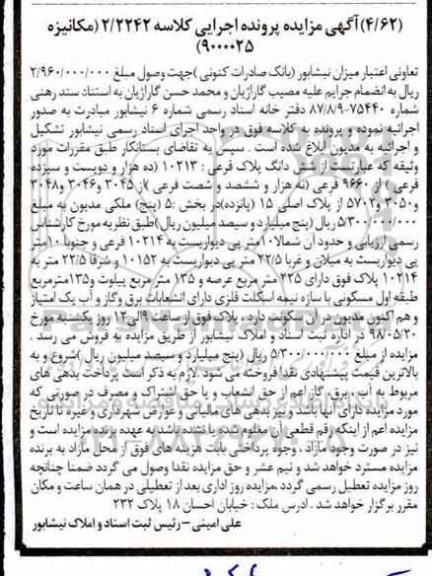 (۴/۶۲) آگهی مزایده پرونده اجرایی کلاسه ۲/۲۲۴۲ (مکانیزه
۹۰۰۰۰۲۵)
تعاونی اعتبار میزان نیشابور (بانک صادرات کنونی) جهت وصول مبلغ ۲/۹۶۰/۰۰۰/۰۰۰
ریال به انضمام جرایم علیه مصیب گازاژیان و محمد حسن گازاژیان به استناد سند رهنی
شماره ۷۵۴۴۰-۸۷/۸/۹ دفتر خانه اسناد رسمی شماره ۶ نیشابور مبادرت به صدور
اجرائیه نموده و پرونده به کلاسه فوق در واحد اجرای اسناد رسمی نیشابور تشکیل
و اجرائیه به مدیون ابلاغ شده است . سپس به تقاضای بستانکار طبق مقررات مورد
وثیقه که عبارتست از شش دانگ پلاک فرعی : ۱۰۲۱۳ (ده هزار و دویست و سیزده
فرعی) از ۹۶۶۰ فرعی (نه هزار و ششصد و شصت فرعی) از ۳۰۴۵ و۳۰۴۶ و۳۰۴۸
و۳۰۵۰ و۵۷۰۲ از پلاک اصلی ۱۵ (پانزده)در بخش :۵ (پنج) ملکی مدیون به مبلغ
۵/۳۰۰/۰۰۰/۰۰۰ ریال (پنج میلیارد و سیصد میلیون ریال)طبق نظریه مورخ کارشناس
رسمی ارزیابی و حدود آن شمالا۱۰متر پی دیواریست به ۱۰۲۱۴ فرعی و جنوبا ۱۰متر
پی دیواریست به میلان و غربا ۲۲/۵ متر پی دیواریست به ۱۰۱۵۲ و شرقا ۲۲/۵ متر به
۱۰۲۱۴ پلاک فوق دارای ۲۲۵ متر مربع عرصه و ۱۳۵ متر مربع پیلوت و۱۳۵مترمربع
طبقه اول مسکونی با سازه نیمه اسکلت فلزی دارای انشعابات برق وگاز و آب یک امتیاز
و هم اکنون مدیون در آن سکونت دارد . پلاک فوق از ساعت ۹الی۱۲ روز یکشنبه مورخ
۹۸/۰۵/۲۰ در اداره ثبت اسناد و املاک نیشابور از طریق مزایده به فروش می رسد .
مزایده از مبلغ ۵/۳۰۰/۰۰۰/۰۰۰ ریال (پنج میلیارد و سیصد میلیون ریال )شروع و به
بالاترین قیمت پیشنهادی نقدا فروخته می شود. لازم به ذکر است پرداخت بدهی های
مربوط به آب، برق، گاز اعم از حق انشعاب و یا حق اشتراک و مصرف در صورتی که
مورد مزایده دارای آنها باشد و نیز بدهی های مالیاتی و عوارض شهرداری و غیره تا تاریخ
مزایده اعم از اینکه رقم قطعی آن معلوم شده یا نشده باشد به عهده برنده مزایده است و
نیز در صورت وجود مازاد ، وجوه پرداختی بابت هزینه های فوق از محل مازاد به برنده
مزایده مسترد خواهد شد و نیم عشر و حق مزایده نقدا وصول می گردد ضمنا چنانچه
روز مزایده تعطیل رسمی گردد ،مزایده روز اداری بعد از تعطیلی در همان ساعت و مکان
مقرر برگزار خواهد شد . آدرس ملک : خیابان احسان ۱۸ پلاک ۲۳۲
علی امینی – رئیس ثبت اسناد و املاک نیشابور